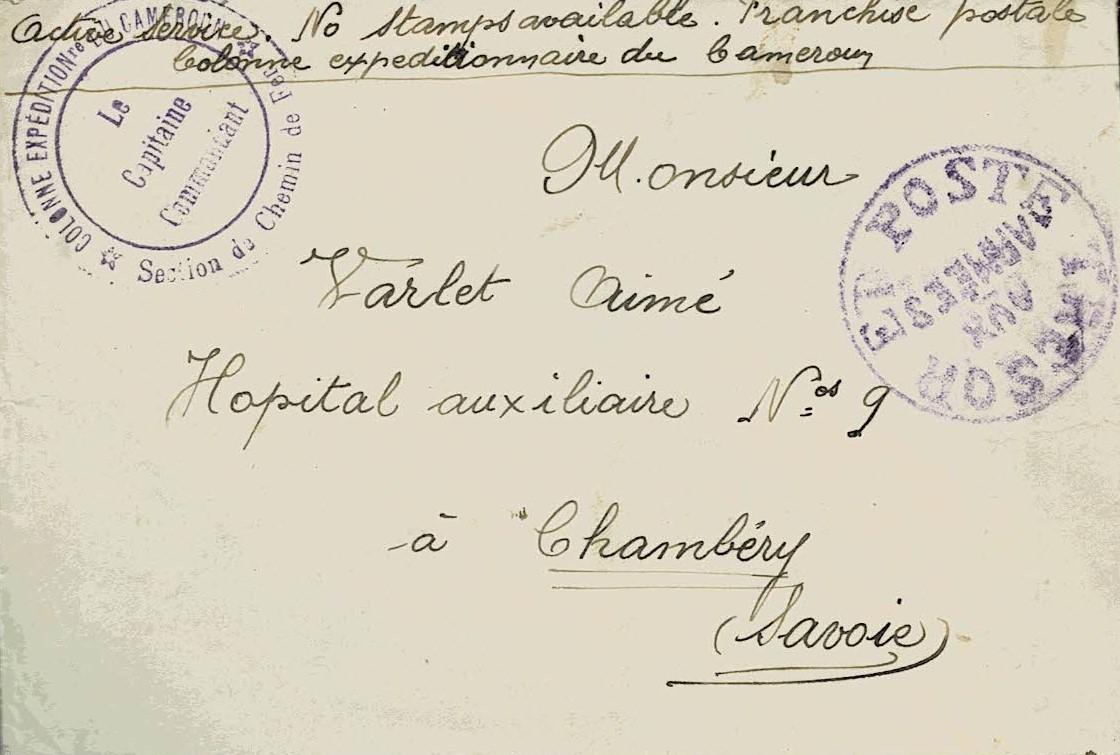 Active Service. No Stamps available. Franchise postale
Colonne expeditionnaire du Cameroun
COLONNE EXPÉDITIONre DU CAMEROUN
Section de Chemin de Fer
Le
Capitaine
Commandant
Monsieur
TRESOR ET POSTES
AUX
ARMEES
Varlet Aimé
Hopital auxiliaire Nos 9
à Chambéry
(Savoie)